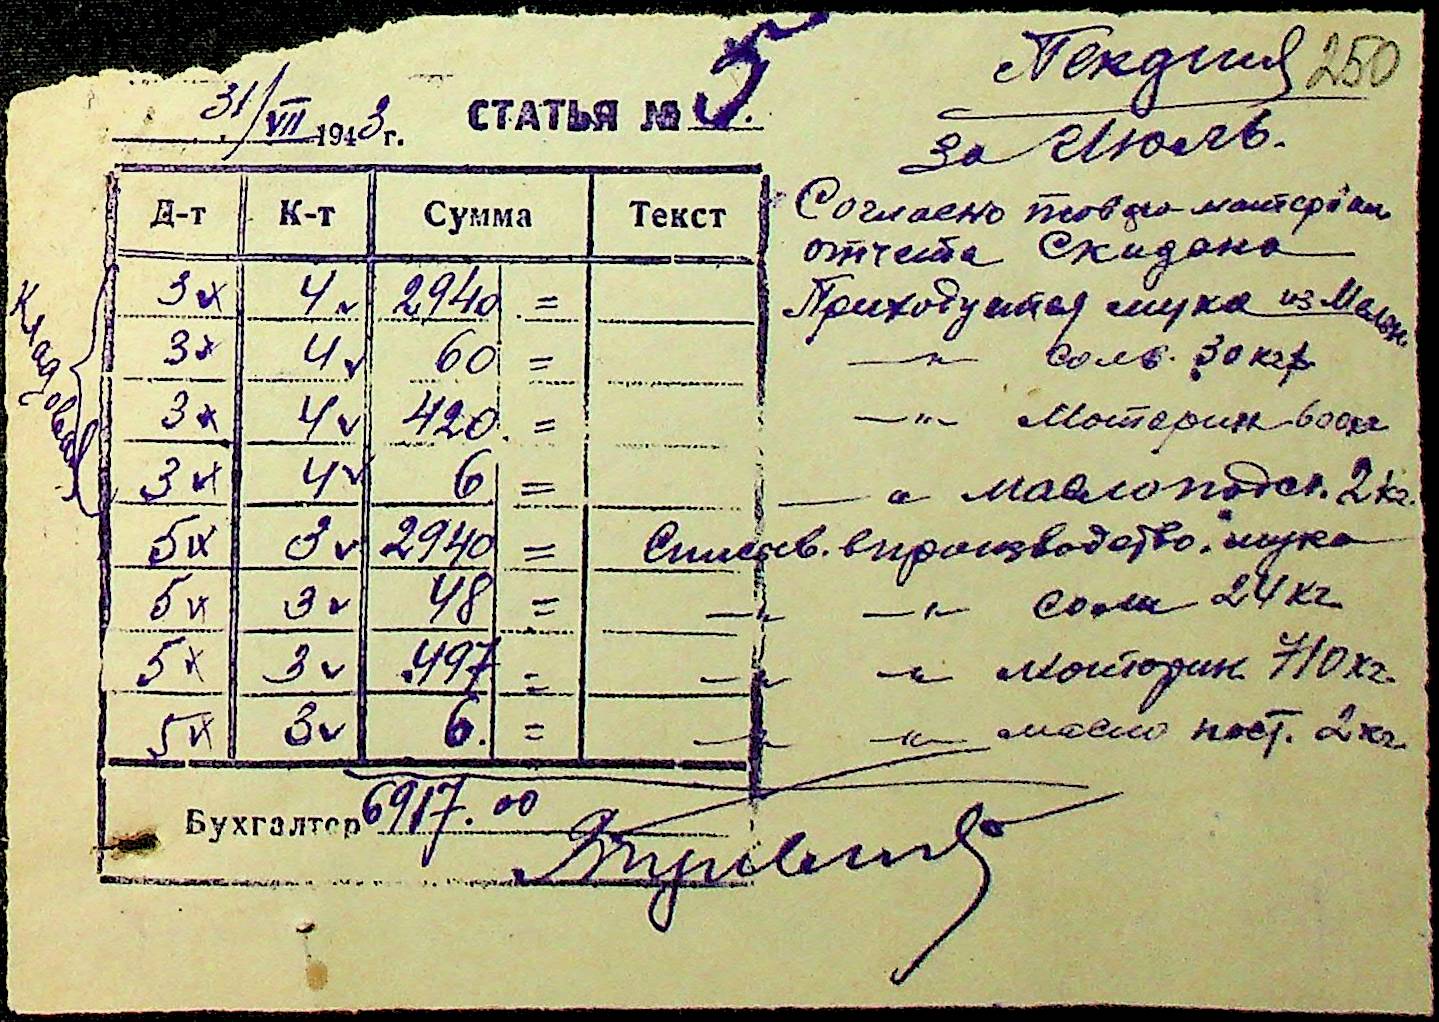 250
за Июль.
31/VII 1943 г. СТАТЬЯ № 5.
Д-т К-т Сумма Текст
Кладовая
Согласно товаро-материал.
отчета Скидана
3 4 2940 = Приходуется мука из
3 4 60 = —"— соль. 30 кгр
3 4 420 = —"— 600кг
3 4 6 = —"— масло подс. 2 кг.
5 3 2940 = Списыв. в производство. мука
5 3 48 = —"— —"— соли 24 кг
5 3 497 = —"— —"— 710 кг.
5 3 6. = —"— —"— масло пост. 2 кг.
Бухгалтер 6917.00